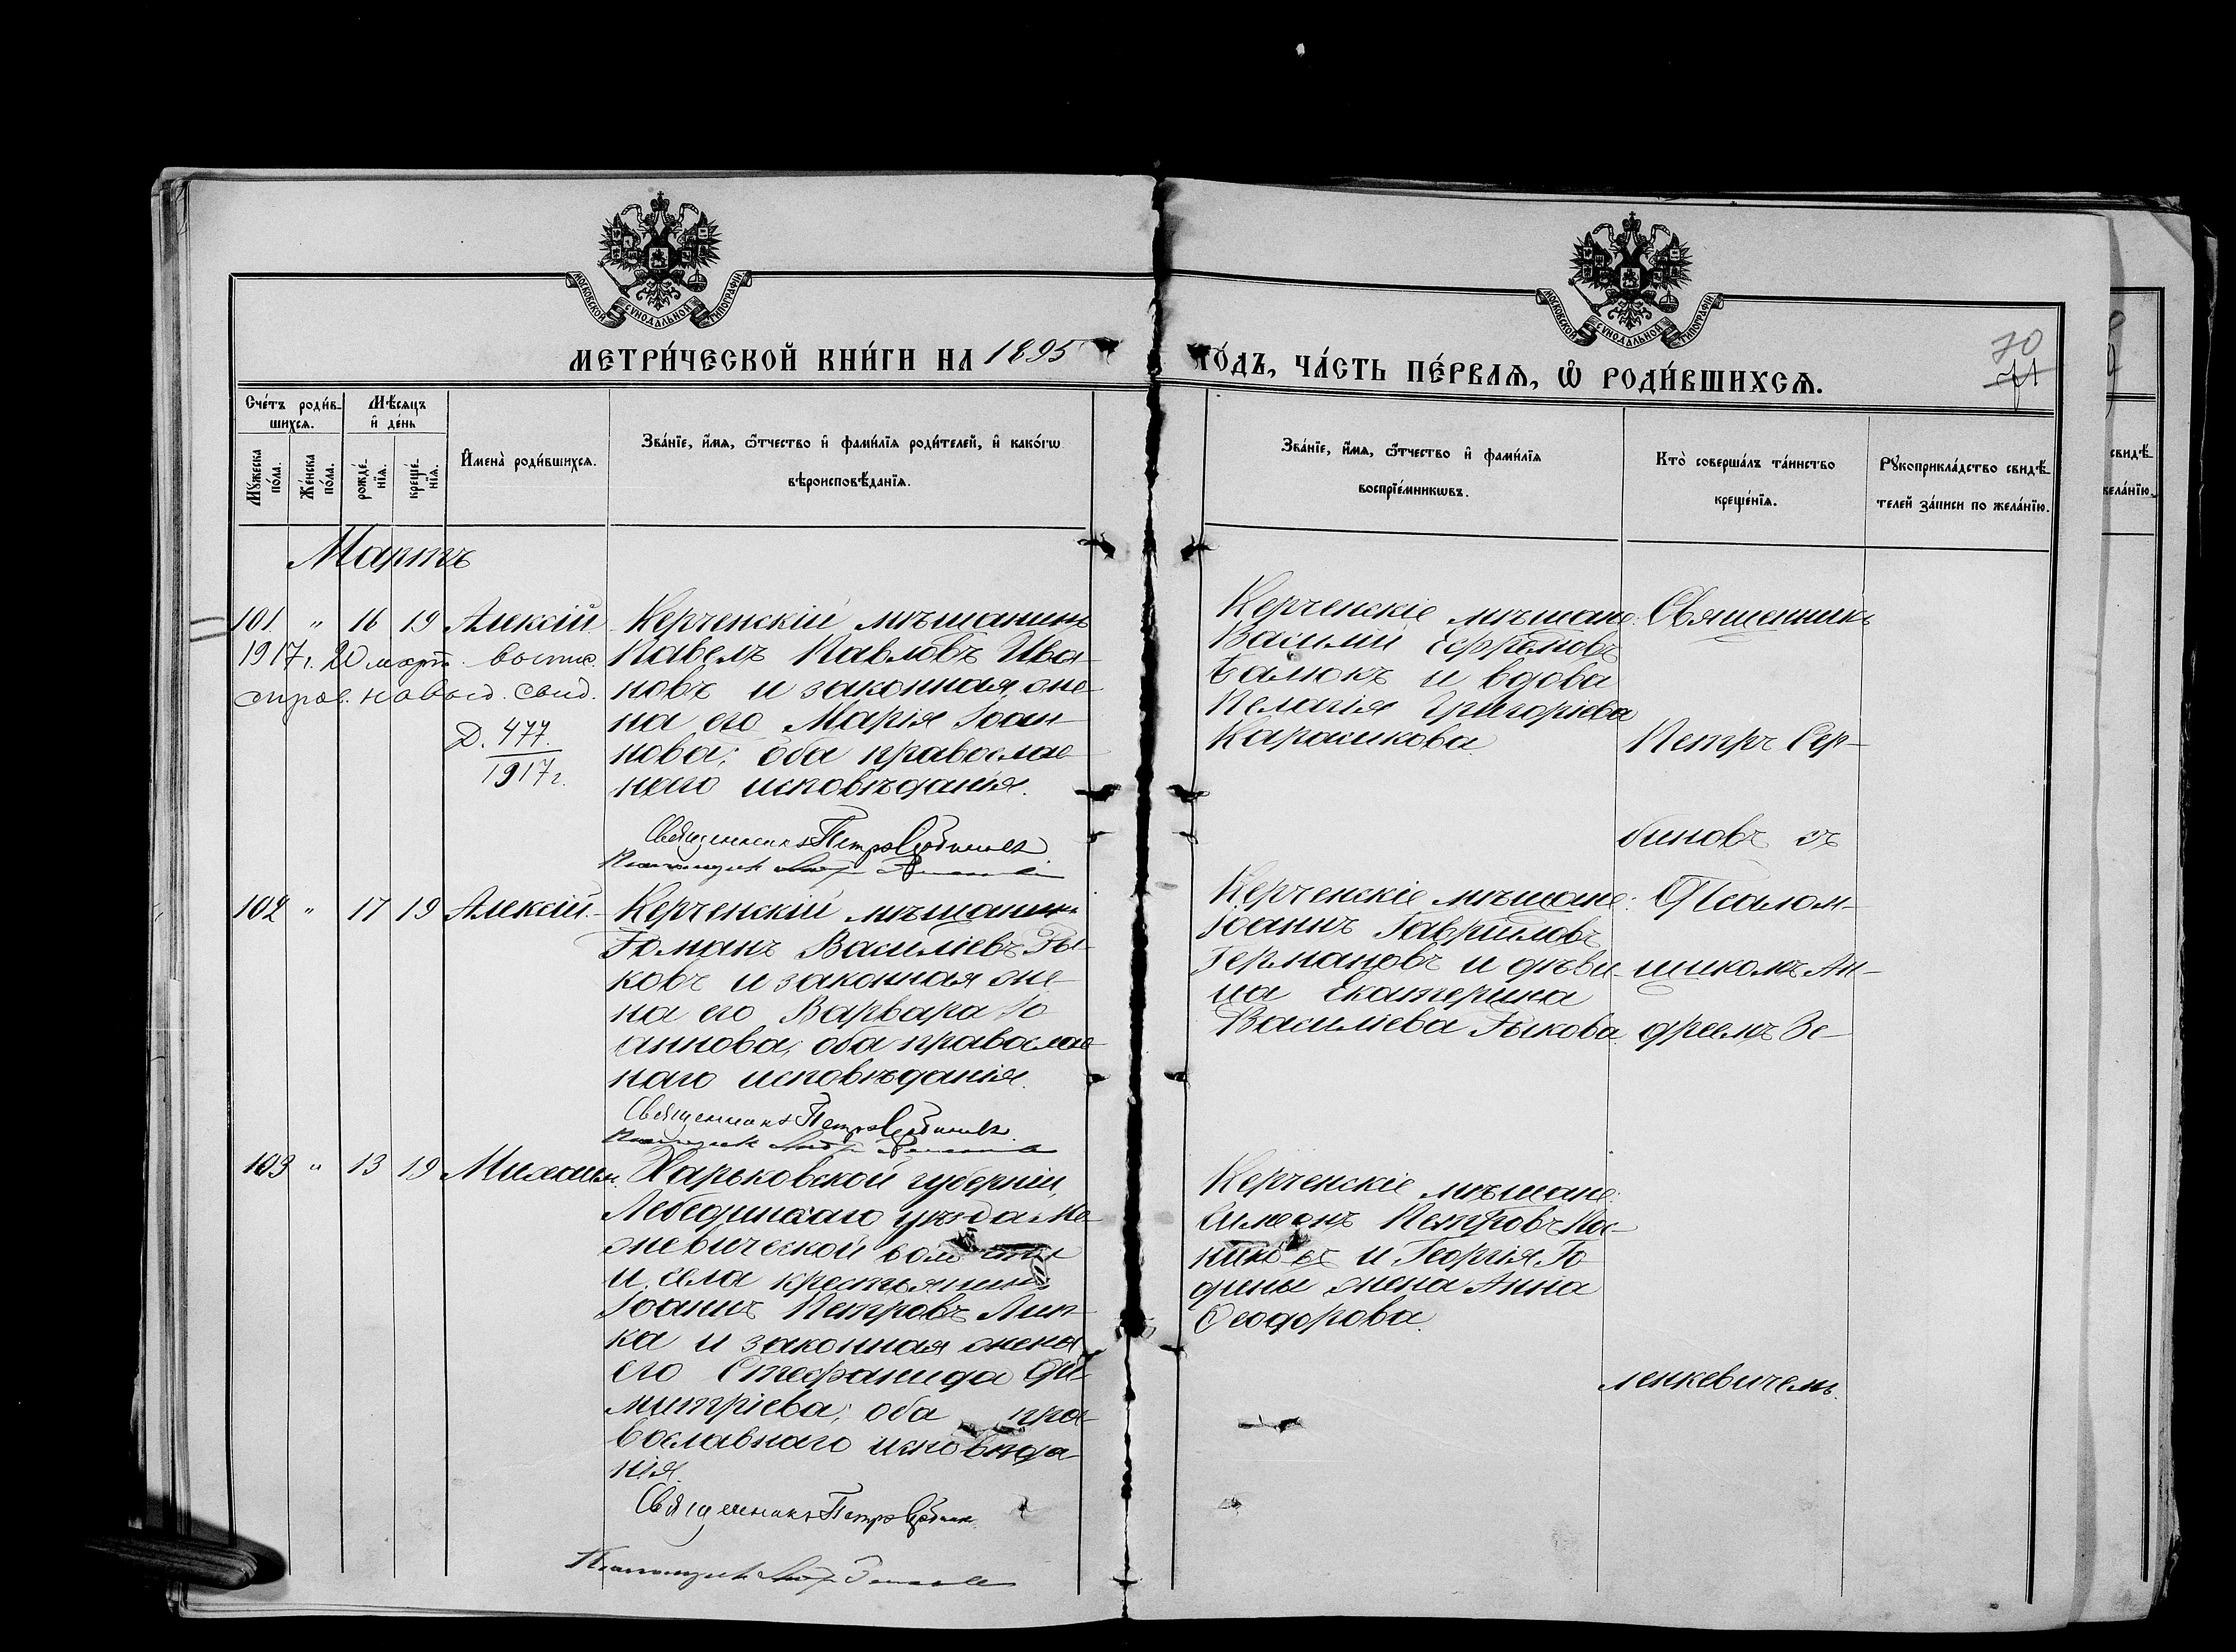 МОСКОВСКОЙ СѴНОДАЛЬНОЙ ТИПОГРАФІИ
МОСКОВСКОЙ СѴНОДАЛЬНОЙ ТИПОГРАФІИ
МЕТРИ́ЧЕСКОЙ КНИ́ГИ НА 1895
ГО́ДЪ, ЧА́СТЬ ПЕ́РВАѦ, Ѡ РОДИ́ВШИХСѦ.
70
71
Сче́тъ роди́в-
шихсѧ.
Мꙋ́жеска
по́ла.
Же́нска
по́ла.
Мѣ́сѧцъ
и҆ де́нь
рожде́-
нїѧ.
креще́-
нїѧ.
И҆мена̀ роди́вшихсѧ.
Зва́нїе, и҆́мѧ, ѻ҆́тчество и҆ фами́лїѧ роди́телей, и҆ како́гѡ
вѣроисповѣ́данїѧ.
Зва́нїе, и҆́мѧ, ѻ҆́тчество и҆ фами́лїѧ
воспрїе́мникѡвъ.
Кто̀ соверша́лъ та́инство
креще́нїѧ.
Рꙋкоприкла́дство свидѣ́-
телей за́писи по жела́нїю.
свидѣ́-
жела́нїю.
Мартъ
101 " 16 19 Алексій.
1917 г. 20 март.
новый. свид.
Д. 477.
1917 г.
Керченскій мѣщанинъ
Павелъ Павловъ Ива-
новъ и законная же-
на его Марія Іоан-
нова; оба православ-
наго исповѣданія.
Священникъ Петръ Сербиновъ
Керченскіе мѣщане:
Василий Ефремовъ
и вдова
Пелагія Григорьева
Священникъ
Петръ Сер-
биновъ съ
102 " 17 19 Алексій.
Керченскій мѣщанинъ
Романъ Василіевъ Ры-
ковъ и законная же-
на его Варвара Іо
аннова; оба православ-
наго исповѣданія.
Священникъ Петръ Сербиновъ
Керченскіе мѣщане:
Іоаннъ Гавриловъ
Германовъ и дѣви-
ца Екатерина
Василіева Рыкова.
Псалом-
щикомъ Ан-
дреемъ Зе-
103 " 13 19 Михаилъ.
Харьковской губерніи,
Лебединскаго уѣзда Ме-
жевической волости
и села крестьянинъ
Іоаннъ Петровъ Лип-
ка и законная жена
его Стефанида Ди-
митріева; оба пра-
вославнаго исповѣда-
нія.
Священникъ Петръ Сербиновъ
Керченскіе мѣщане:
Симеонъ Петровъ
и Георгія Го
дины жена Анна
Ѳеодорова.
ленкевичемъ.